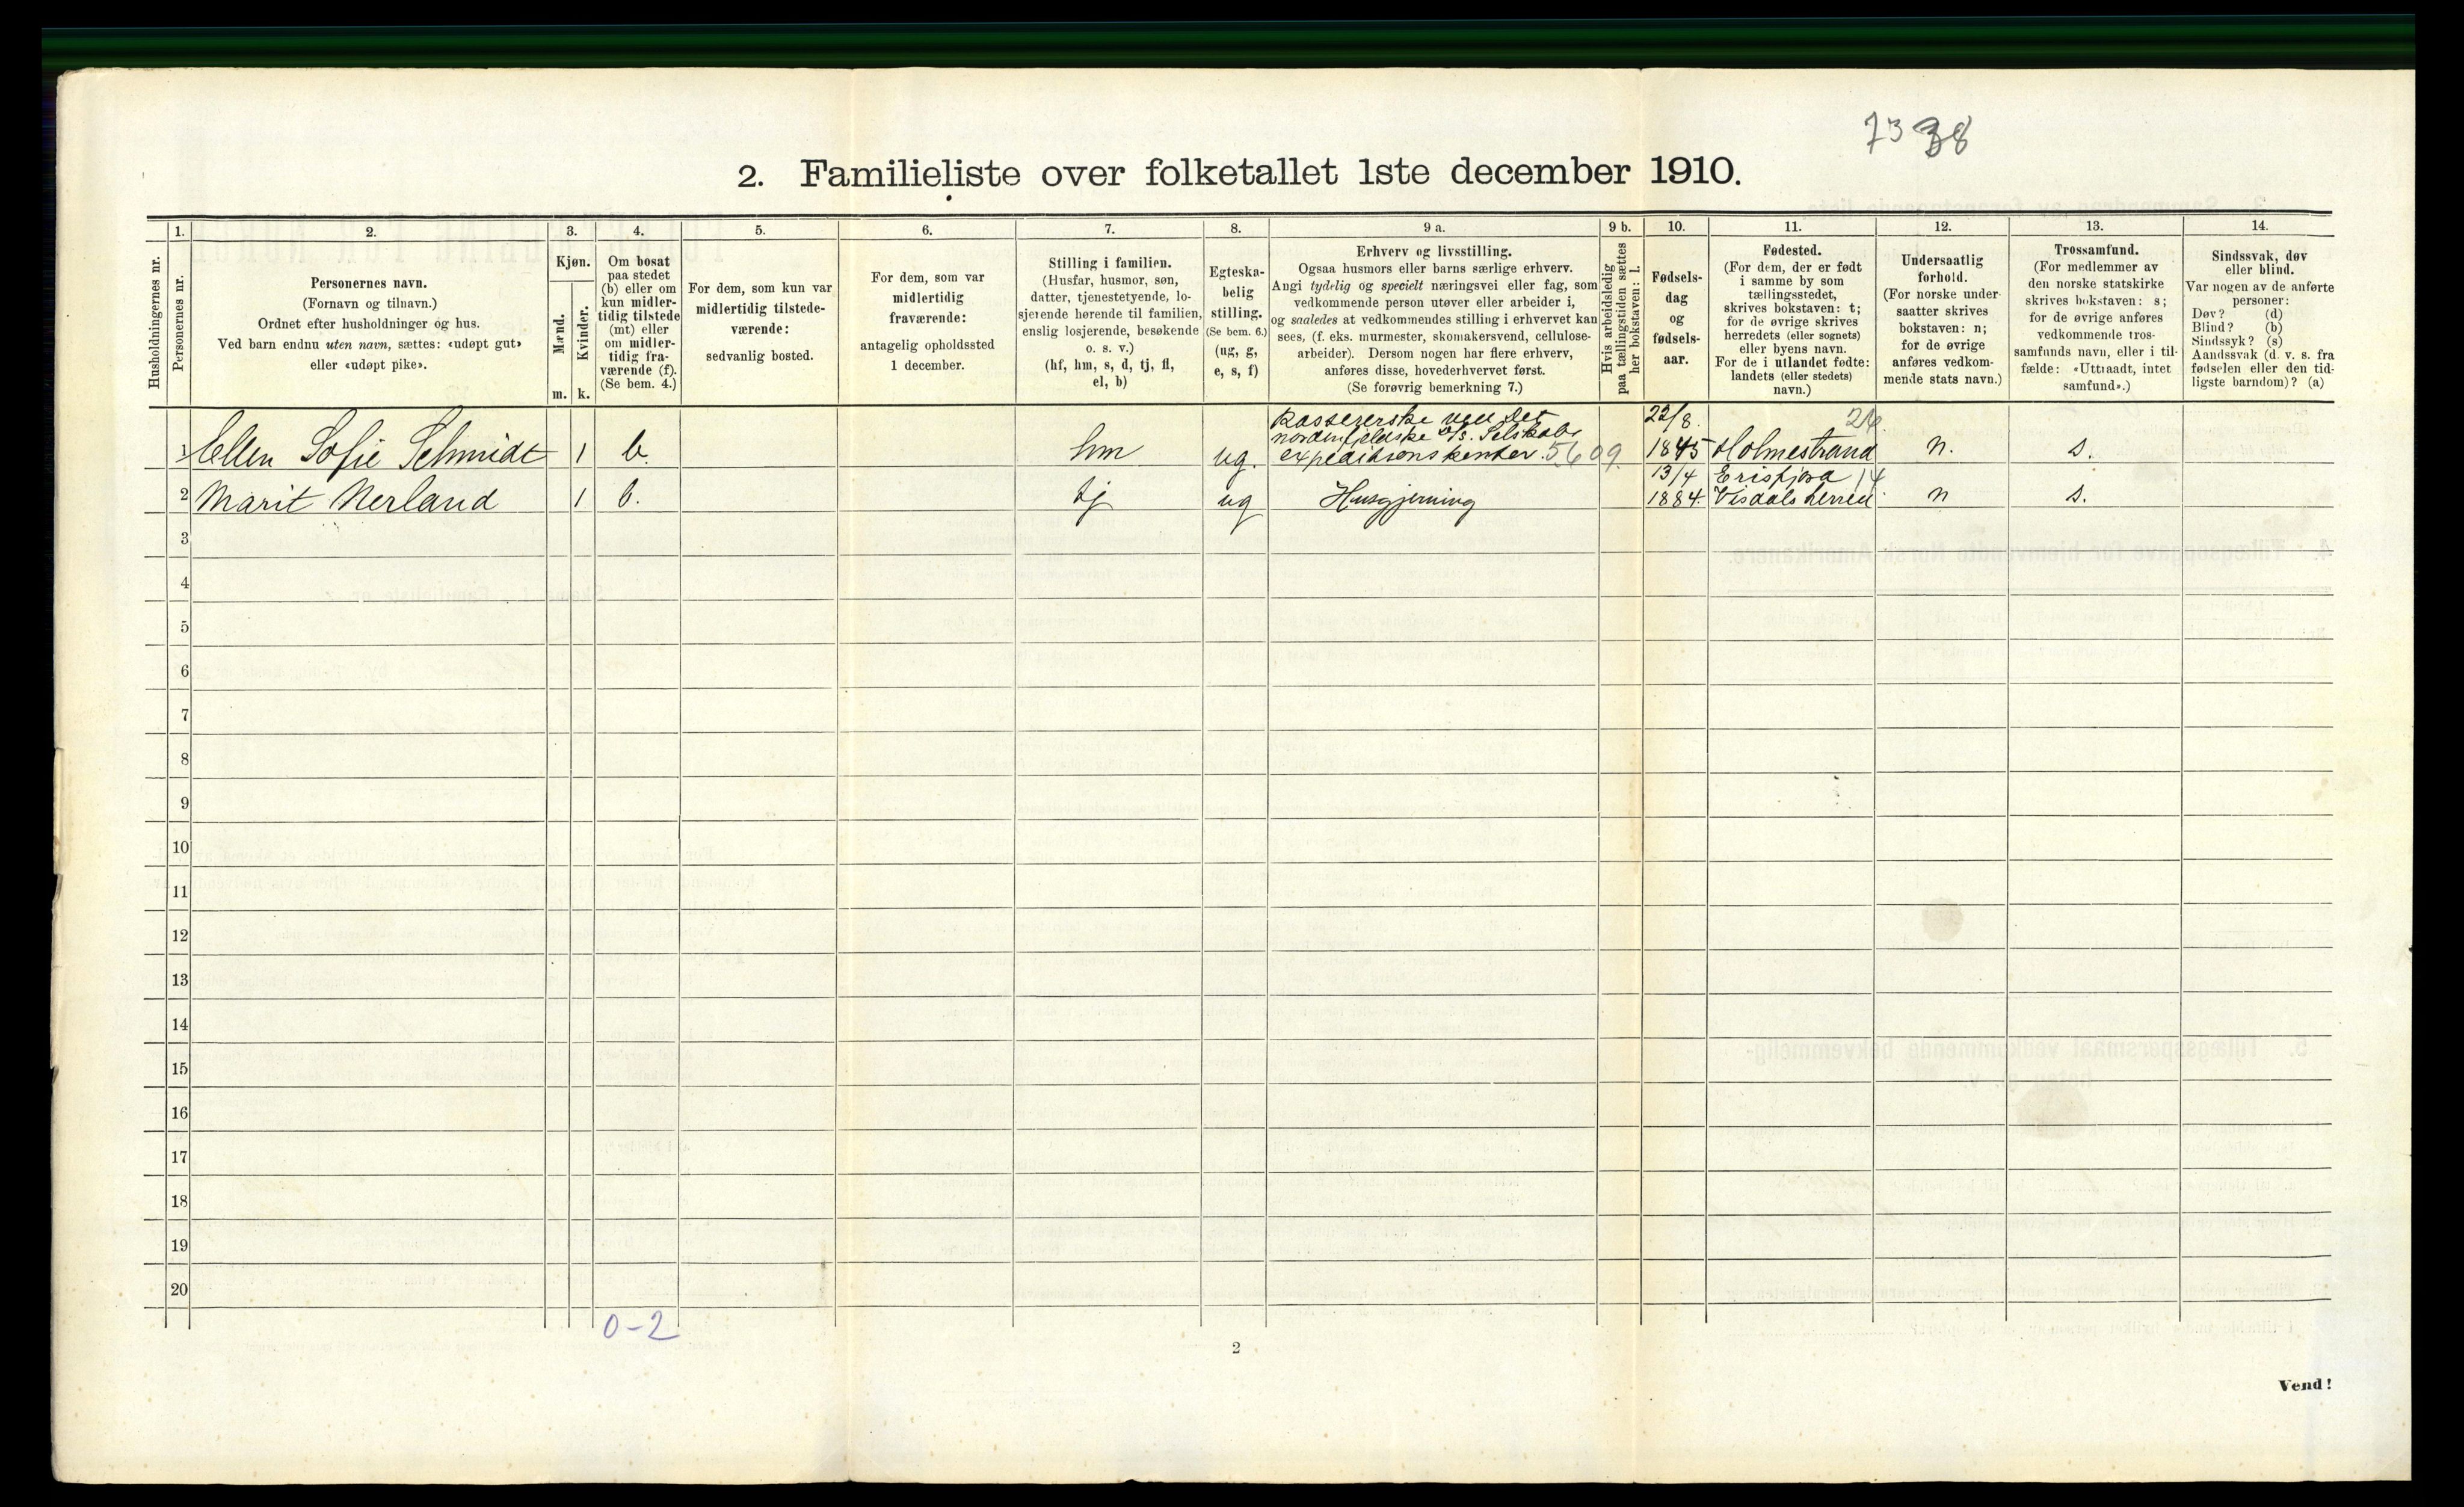 7338
2. Familieliste over folketallet 1ste december 1910.
Husholdningernes nr.
1.
Personernes nr.
2.
Personernes navn.
(Fornavn og tilnavn.)
Ordnet efter husholdninger og hus.
Ved barn endnu uten navn, sættes: «udøpt gut»
eller «udøpt pike».
3.
Kjøn.
Mænd.
Kvinder.
m. k.
4.
Om bosat
paa stedet
(b) eller om
kun midler-
tidig tilstede
(mt) eller
om midler-
tidig fra-
værende (f).
(Se bem. 4.)
5.
For dem, som kun var
midlertidig tilstede-
værende:
sedvanlig bosted.
6.
For dem, som var
midlertidig
fraværende:
antagelig opholdssted
1 december.
7.
Stilling i familien.
(Husfar, husmor, søn,
datter, tjenestetyende, lo-
sjerende hørende til familien,
enslig losjerende, besøkende
o. s. v.)
(hf, hm, s, d, tj, fl,
el, b)
8.
Egteska-
belig
stilling.
(Se bem. 6.)
(ug, g,
e, s, f)
9 a.
Erhverv og livsstilling.
Ogsaa husmors eller barns særlige erhverv.
Angi tydelig og specielt næringsvei eller fag, som
vedkommende person utøver eller arbeider i,
og saaledes at vedkommendes stilling i erhvervet kan
sees, (f. eks. murmester, skomakersvend, cellulose-
arbeider). Dersom nogen har flere erhverv,
anføres disse, hovederhvervet først.
(Se forøvrig bemerkning 7.)
9 b.
Hvis arbeidsledig
paa tællingstiden sættes
her bokstaven: l.
10.
Fødsels-
dag
og
fødsels-
aar.
11.
Fødested.
(For dem, der er født
i samme by som
tællingsstedet,
skrives bokstaven: t;
for de øvrige skrives
herredets (eller sognets)
eller byens navn.
For de i utlandet fødte:
landets (eller stedets)
navn.)
12.
Undersaatlig
forhold.
(For norske under-
saatter skrives
bokstaven: n;
for de øvrige
anføres vedkom-
mende stats navn.)
13.
Trossamfund.
(For medlemmer av
den norske statskirke
skrives bokstaven: s;
for de øvrige anføres
vedkommende tros-
samfunds navn, eller i til-
fælde: «Uttraadt, intet
samfund».)
14.
Sindssvak, døv
eller blind.
Var nogen av de anførte
personer:
Døv? (d)
Blind? (b)
Sindssyk? (s)
Aandssvak (d. v. s. fra
fødselen eller den tid-
ligste barndom)? (a)
1 Ellen Sofie Schmidt 1 b. hm ug. Kassererske ved Det
nordenfjeldske D/s. Selskabs
expeditionskontor. 5609. 22/8. 1845 Holmestrand n. s.
2 Marit Nerland 1 b. tj ug Husgjerning 13/4 1884. Erisfjord 14
Visdals herred n s.
3
4
5
6
7
8
9
10
11
12
13
14
15
16
17
18
19
20
0-2
2
Vend!